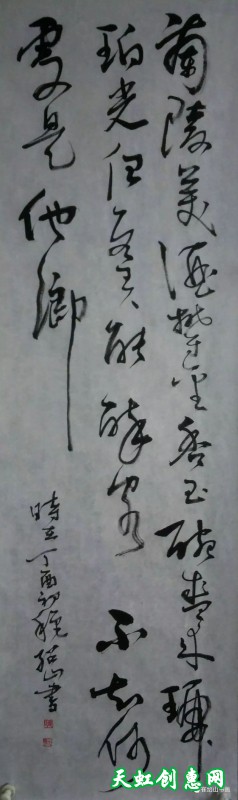 蘭陵美酒鬱金香玉碗盛來琥
珀光但使主人能醉客不知何
處是他鄉
時在丁酉初
山書
天虹创惠网